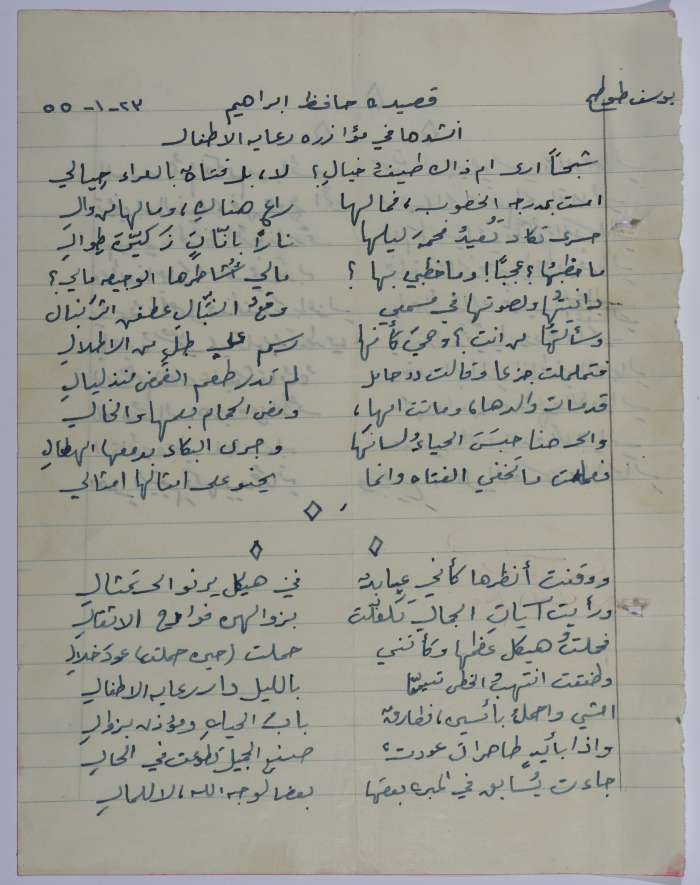 يوسف طوطح
قصيده حافظ ابراهيم ٢٣-١-٥٥
انشدها في مؤازره رعايه الاطفال
شبحاً ارى ام ذاك طيف خيالِ؟ لا، بل فتاة بالعراء حِيالي
امست بمدرجه الخطوب، فمالها راعٍ هناك، ومالها من والِ
حسرى تكاد تُعيدُ فحمة ليلها ناراً بانّاتٍ ذَكينَ طِوالِ
ما خطبُها؟ عجبًا! وما خطبي بها؟ مالي اُشاطرها الوجيعه مالي؟
دانيتُها ولصوتها في مسمعي وقعُ النّبال عطفن اثر نبال
وسألتُها من انت؟ وهيَ كأنها رسم على طللٍ من الاطلالِ
فتململت جزعا وقالت حامل لم تدر طعم الغَمض منذ ليالِ
قد مات والدها، وماتت امها، ومضى الحمام بعمها والخالِ
والى هنا حبسَ الحياءُ لسانَها وجرى البكاء بدمعها الهطالِ
فعلمت ما تخفي الفتاه وانما يحنو على امثالها امثالي
ووقفت أنظرها كأني عابدٌ في هيكل يرنو الى تمثالِ
ورأيت آياتِ الجمالِ تكفلت بزوالهن فوادح الاثقالِ
فحملتُ هيكل عظمها وكأنني حملت (حين حملت) عودَ خلالِ
وطفقت انتهبُ الخطى متيمّمًا بالليل دار رعايه الاطفالِ
امشي واحمل بائسين، فطارقٌ باب الحياهِ ومؤذن بزوالِ
واذا بأيدٍ طاهراتٍ عودت، صنع الجميل تطوعت في الحالِ
جاءت يُسابق في المبره بعضها بعضا لوجه الله، لا للمالِ